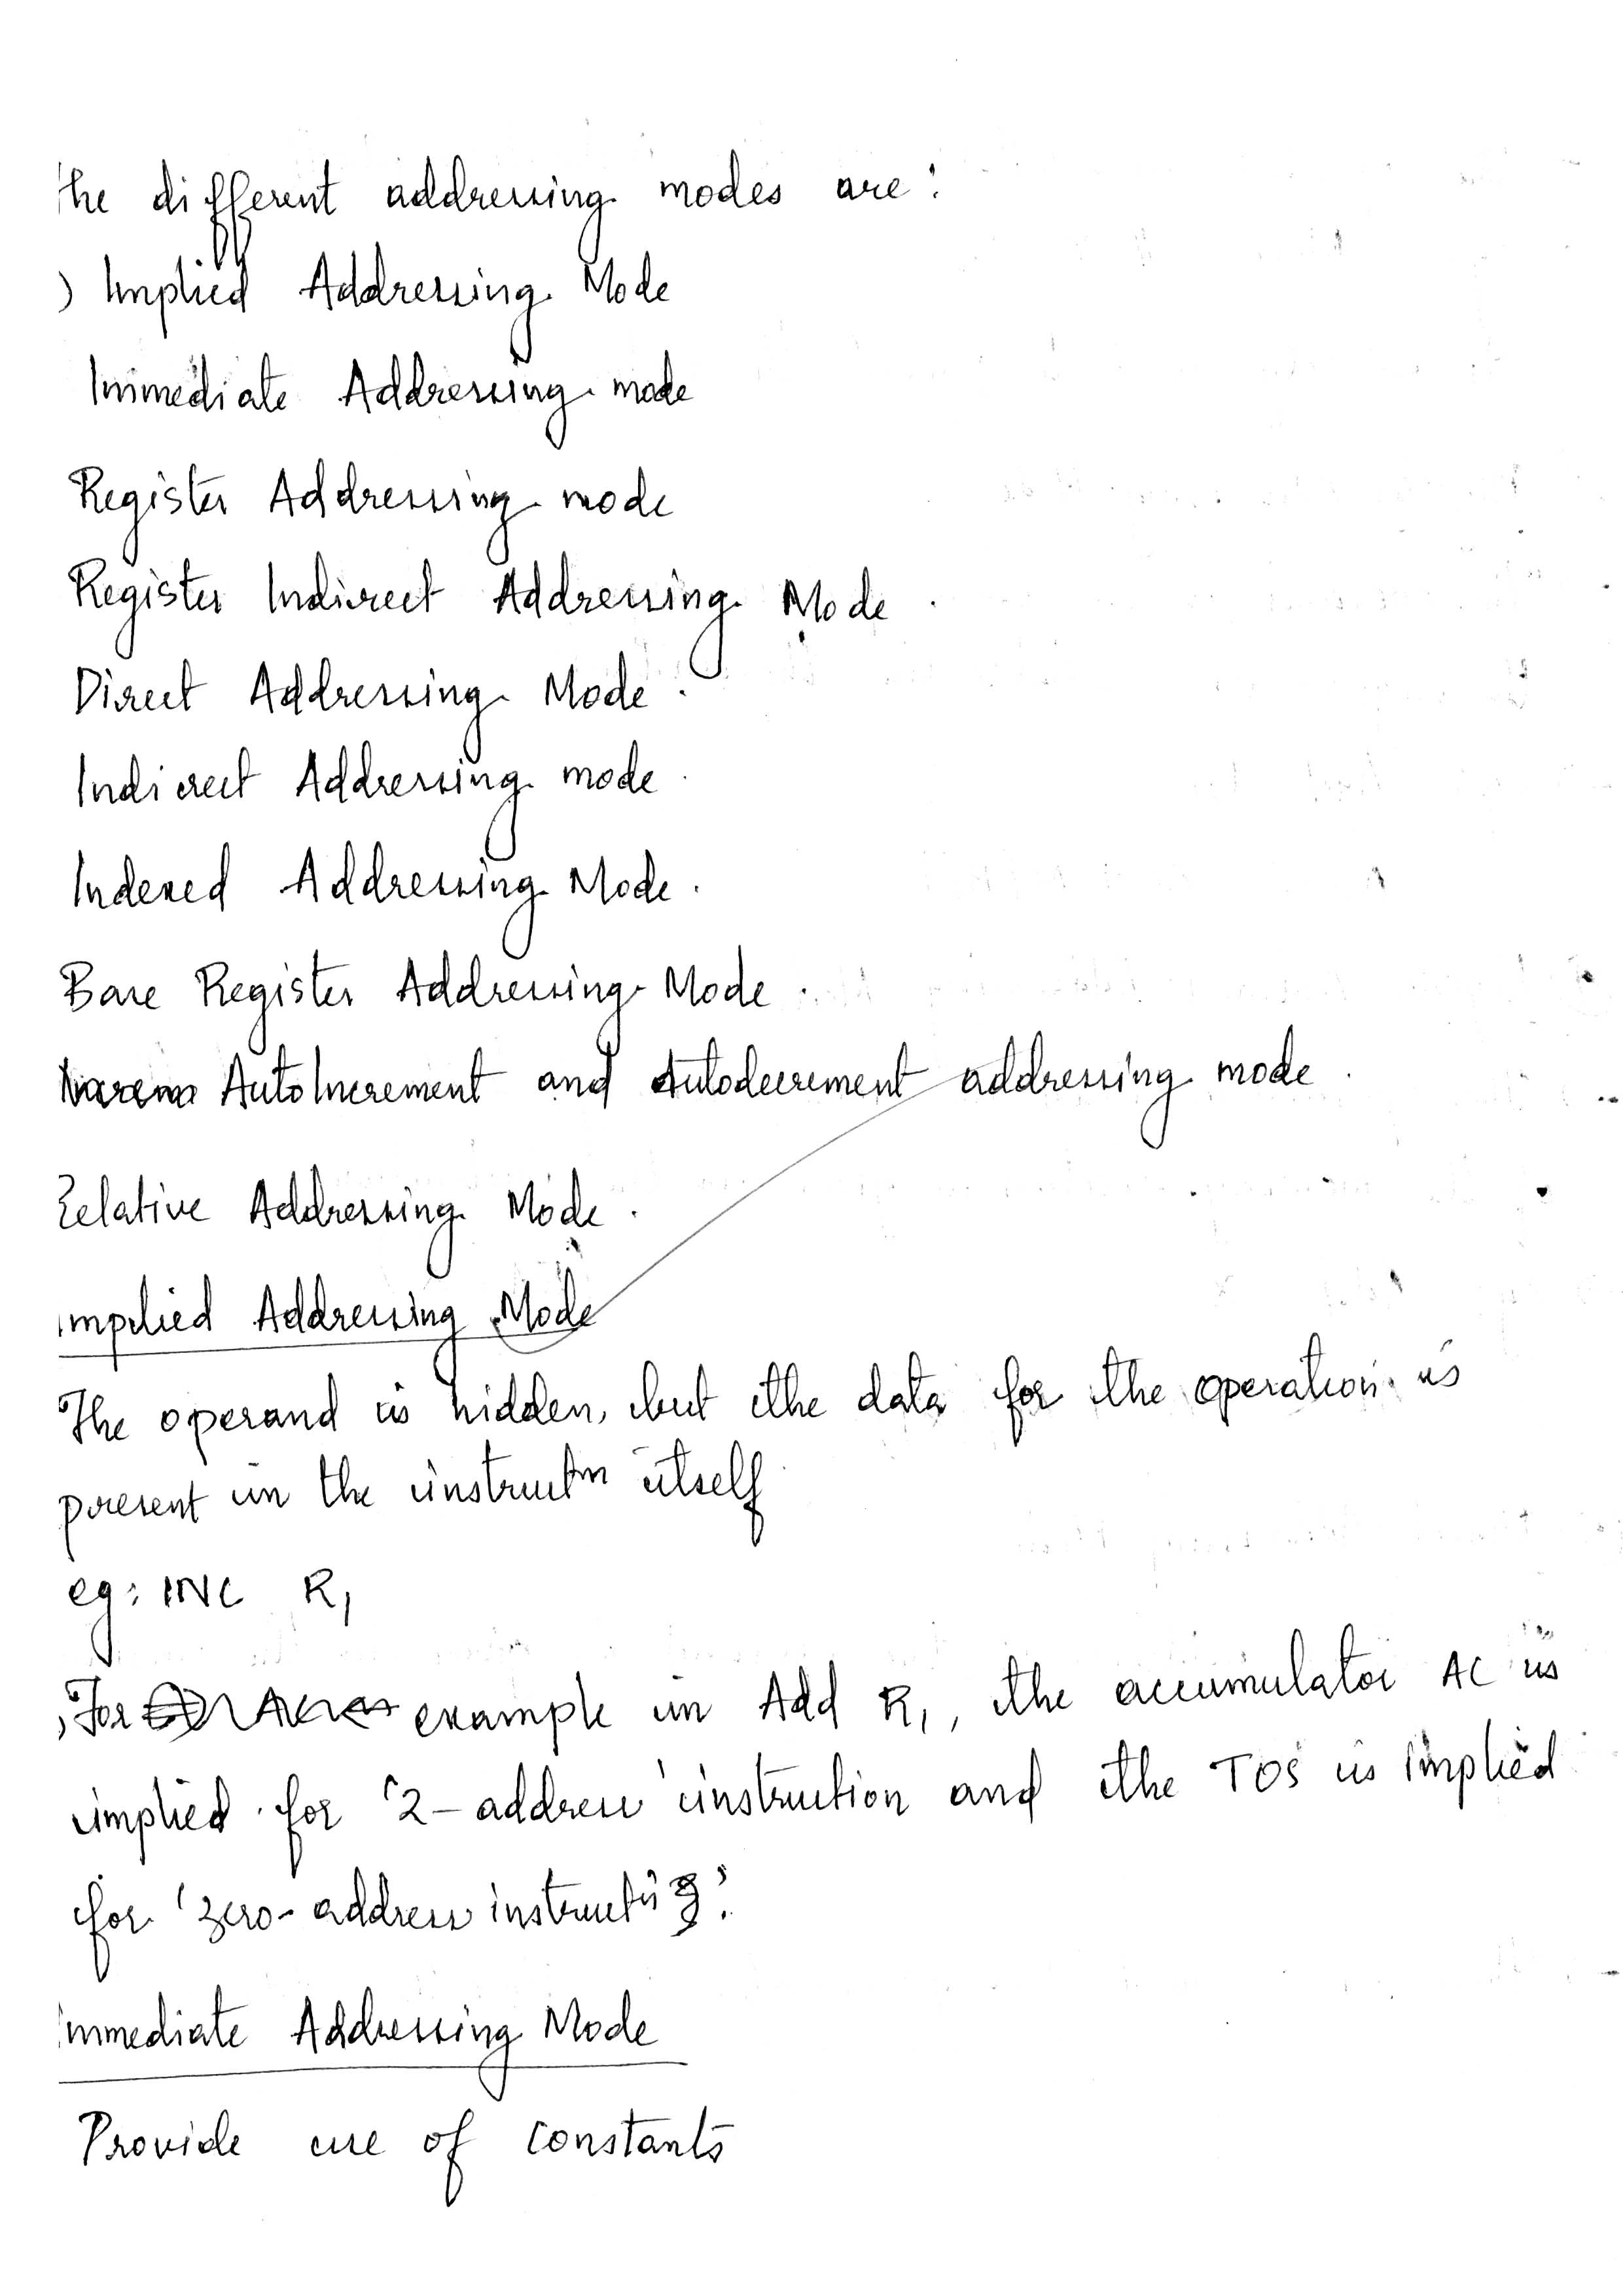 The different addressing modes are:
) Implied Addressing Mode
Immediate Addressing mode
Register Addressing mode
Register Indirect Addressing Mode.
Direct Addressing Mode.
Indirect Addressing mode.
Indexed Addressing Mode.
Base Register Addressing Mode.
AutoIncrement and Autodecrement addressing mode.
Relative Addressing Mode.
Implied Addressing Mode
The operand is hidden, but the data for the operation is
present in the instructn itself
eg: INC R1
For example in Add R1, the accumulator AC is
implied for '2-address' instruction and the TOS is implied
for 'zero-address instructn'.
Immediate Addressing Mode
Provide use of constants